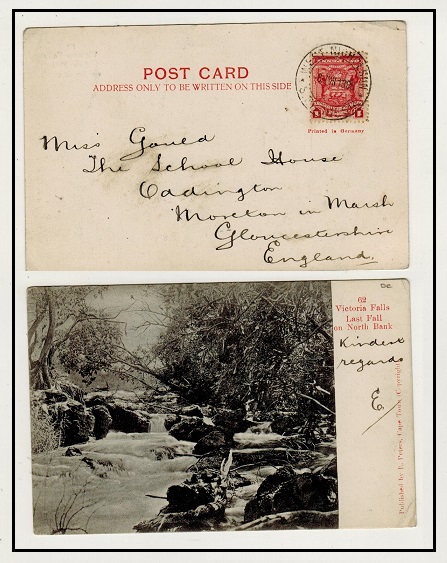 POST CARD
ADDRESS ONLY TO BE WRITTEN ON THIS SIDE
Printed in Germany
Miss Gould
The School House
Oddington
Moreton in Marsh
Gloucestershire
England.
62
Victoria Falls
Last Fall
on North Bank
Kindest
regards
E
Published by R. Peters, Cape Town. (Copyright)